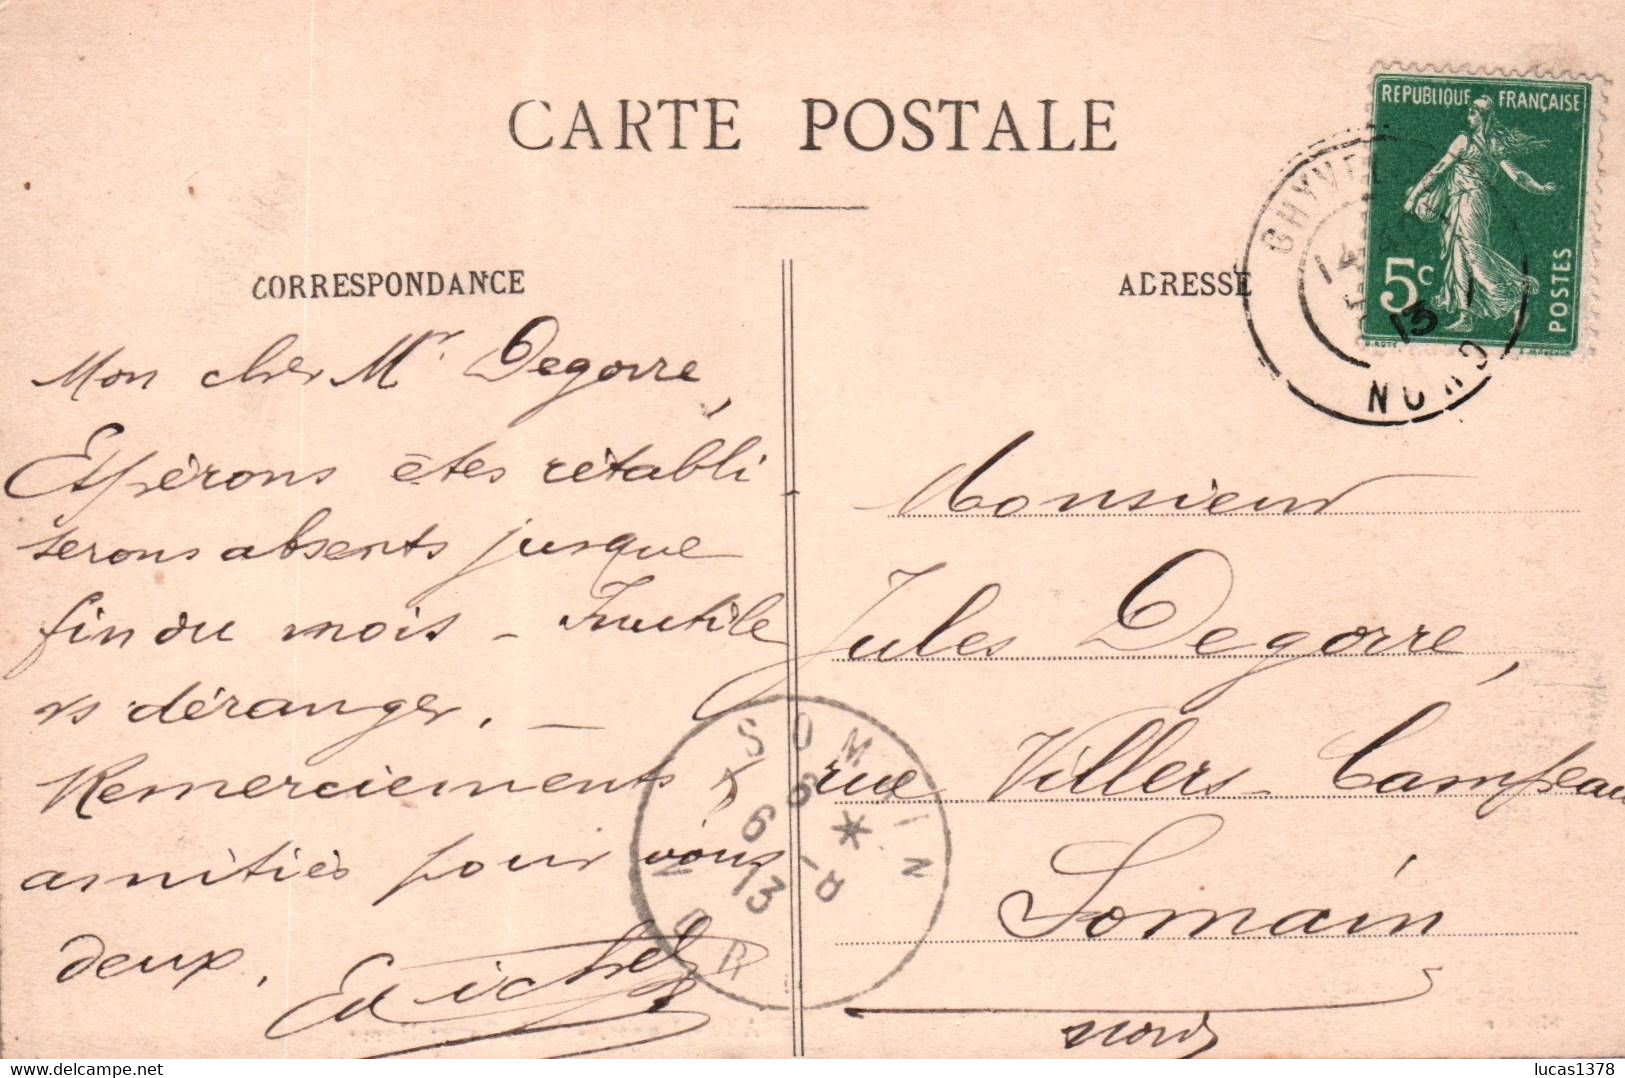 CARTE POSTALE
CORRESPONDANCE
Mon cher Mr. Degorre,
Espérons êtes rétabli
serons absents jusque
fin du mois - Inutile
vs déranger. -
Remerciements &
amitiés pour vous
deux.
ADRESSE
RÉPUBLIQUE FRANÇAISE
5c
POSTES
GHYVE
14
13
NORD
Monsieur
Jules Degorre,
rue Villers-Campeau
Somain
Nord
SOMAIN
6 * 6-8
13
NOR
lucas1378